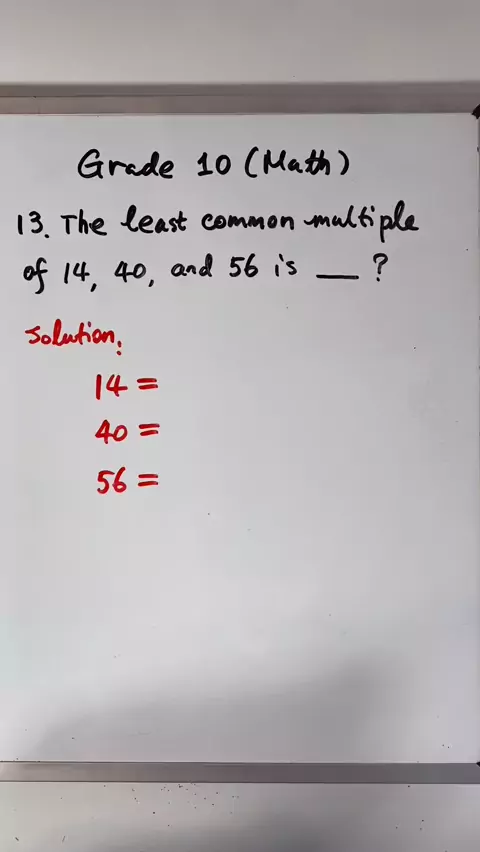 Grade 10 (Math)
13. The least common multiple
of 14, 40, and 56 is __ ?
Solution:
14 =
40 =
56 =